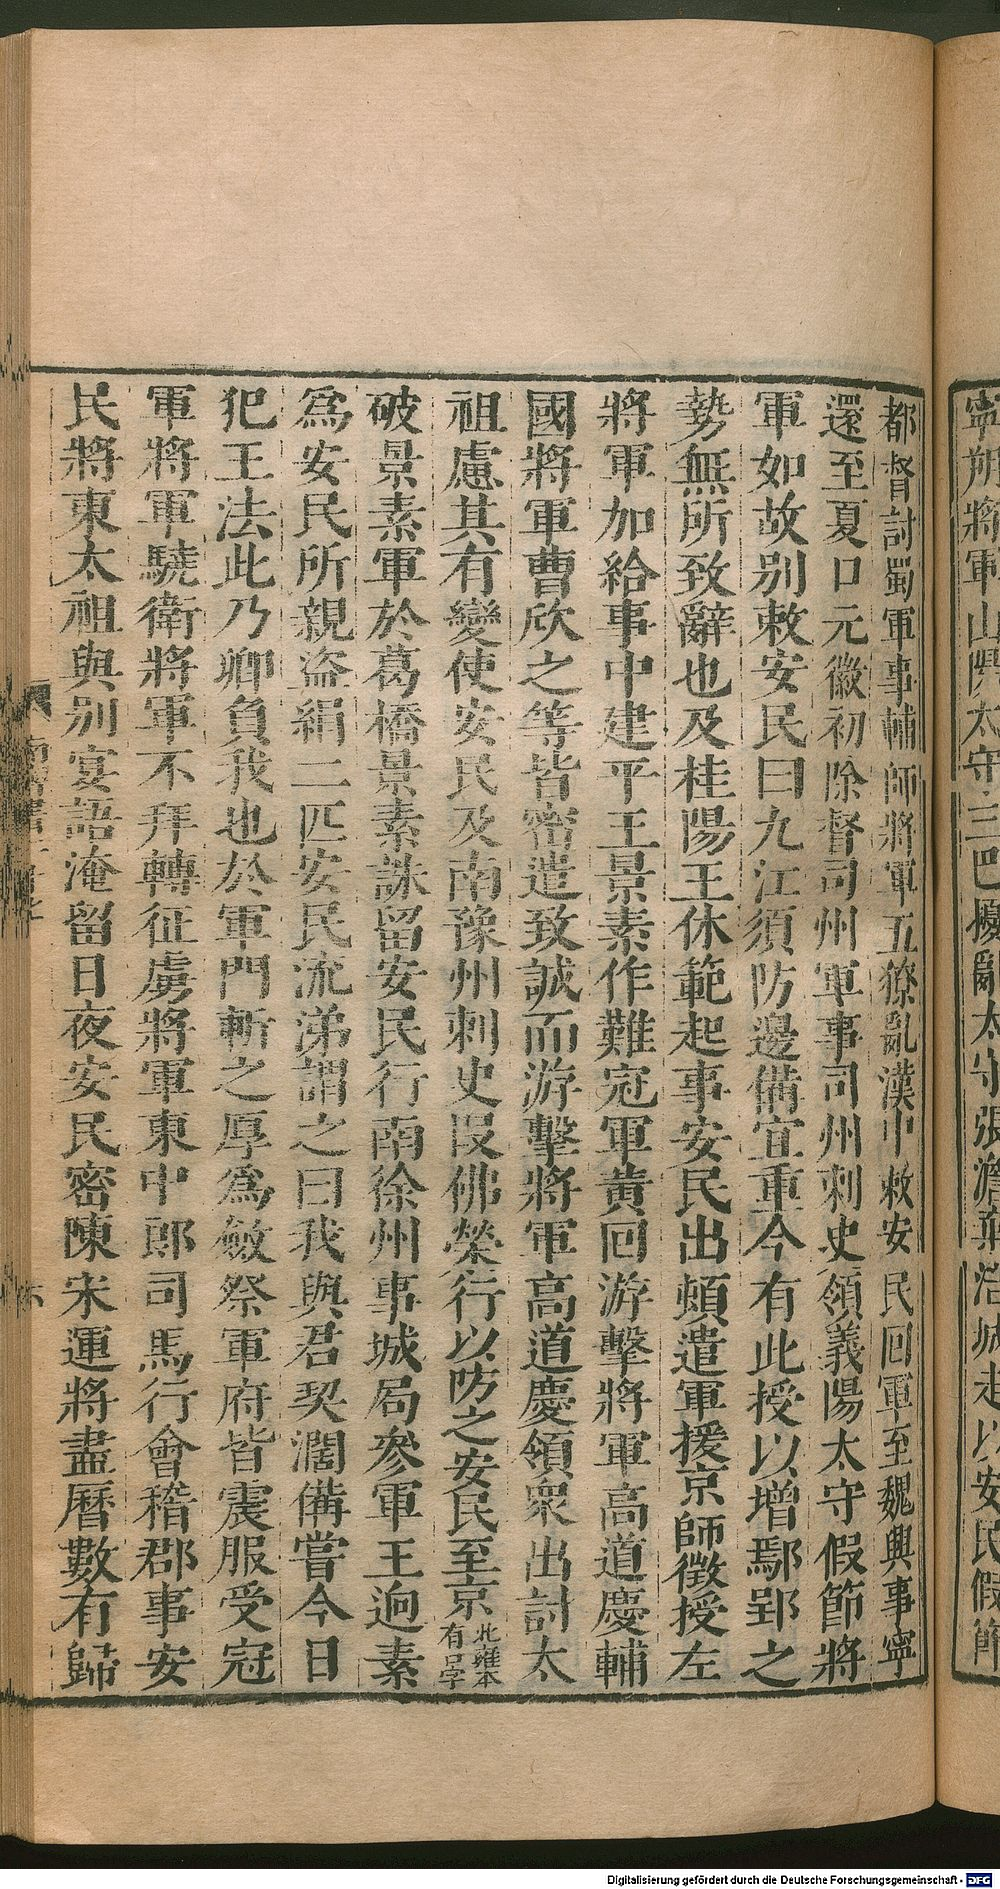 寧朔將軍山陽太守三巴擾亂太守張澹棄涪城走以安民假節
都督討蜀軍事輔師將軍五獠亂漢中敕安民回軍至魏興事寧
還至夏口元徽初除督司州軍事司州刺史領義陽太守假節將
軍如故別敕安民曰九江須防邊備宜重今有此授以增鄢郢之
勢無所致辭也及桂陽王休範起事安民出頓遣軍援京師徵授左
將軍加給事中建平王景素作難冠軍黄回游擊將軍高道慶輔
國將軍曹欣之等皆密遣致誠而游擊將軍高道慶領衆出討太
祖慮其有變使安民及南豫州刺史段佛榮行以防之安民至京北雍本有口字
破景素軍於葛橋景素誅留安民行南徐州事城局參軍王迥素
爲安民所親盜絹二匹安民流涕謂之曰我與君契濶備嘗今日
犯王法此乃卿負我也於軍門斬之厚爲斂祭軍府皆震服受冠
軍將軍驍衛將軍不拜轉征虜將軍東中郎司馬行會稽郡事安
民將東太祖與別宴語淹留日夜安民密陳宋運將盡曆數有歸
Digitalisierung gefördert durch die Deutsche Forschungsgemeinschaft - DFG